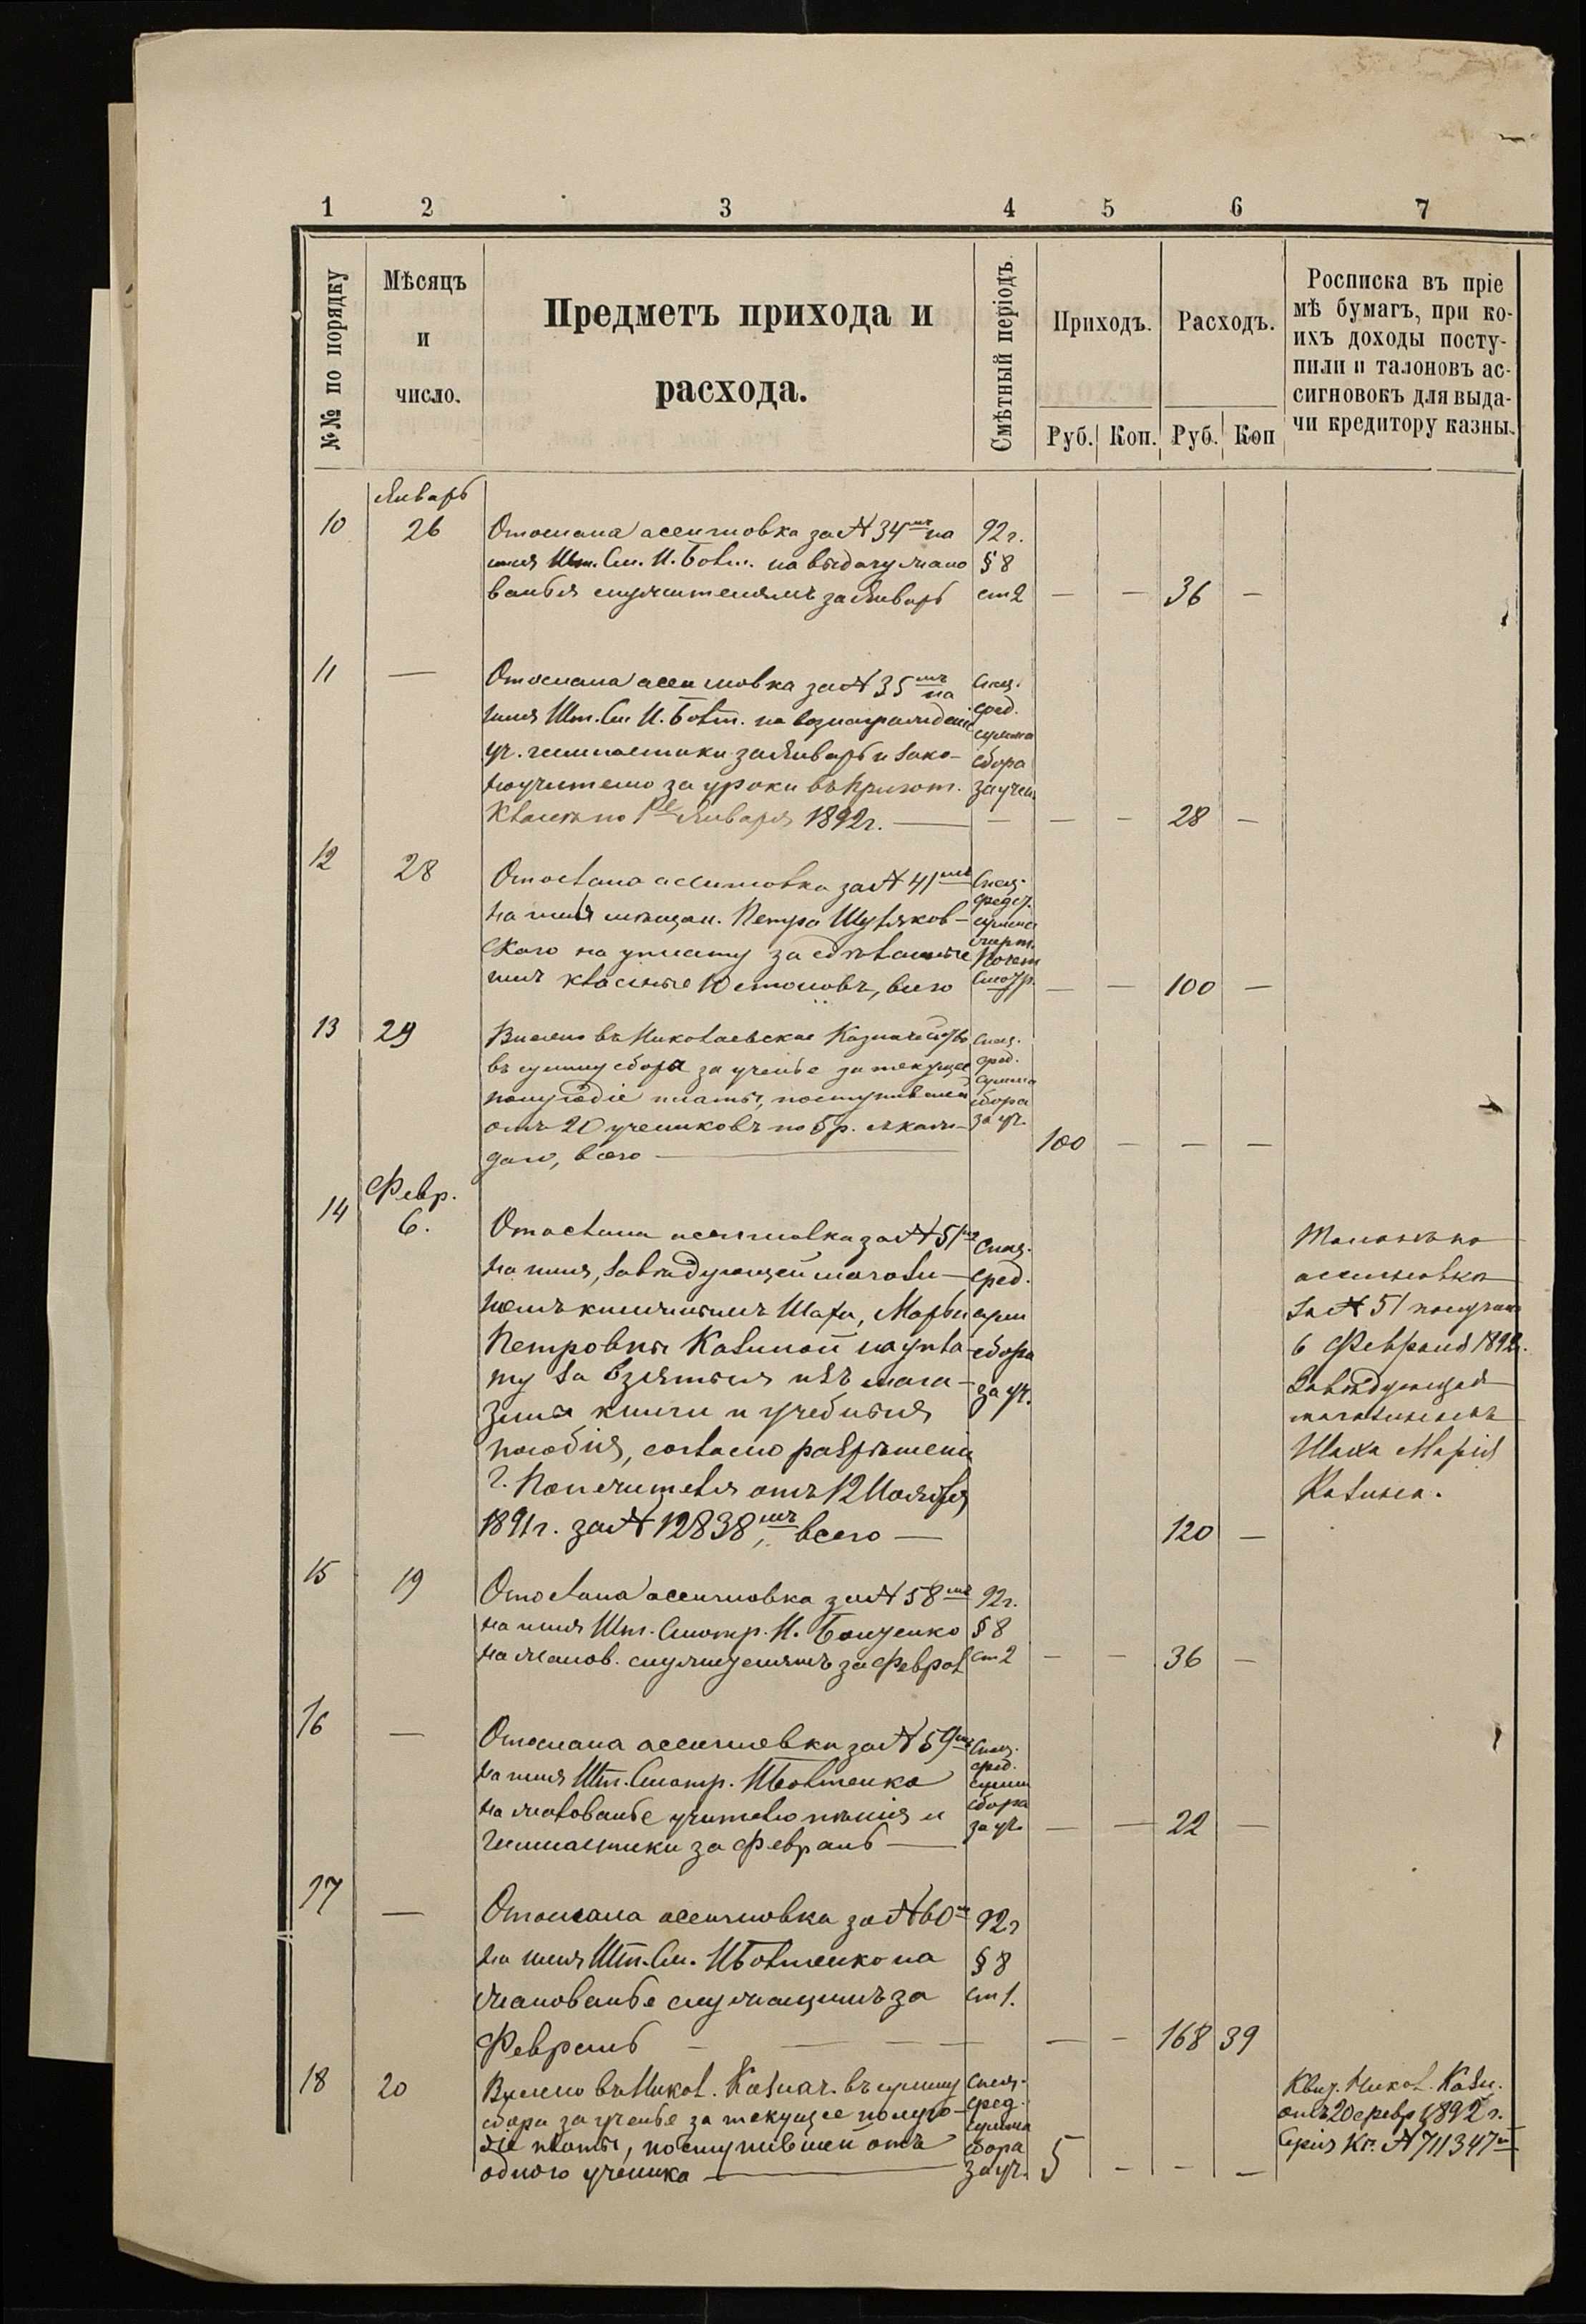 1 2 3 4 5 6 7
№№ по порядку
Мѣсяцъ
и
число.
Предметъ прихода и
расхода.
Смѣтный періодъ.
Приходъ.
Расходъ.
Руб. Коп. Руб. Коп
Росписка въ пріе
мѣ бумагъ, при ко-
ихъ доходы посту-
пили и талоновъ ас-
сигновокъ для выда-
чи кредитору казны.
Январь
10 26 Отослана ассигновка за № 34мъ на 92 г.
имя Шт. См. И. на выдачу жало § 8
ванья служителямъ за Январь ст 2 — — 36 —
11 — Отослана ассигновка за № 35мъ на Спец.
имя Шт. См И. на вознагражденіе сред.
уч. гимнастики за Январь и зако- сумма сбора
ноучителю за уроки въ пригот. за учен.
классѣ по 1е Января 1892 г. — — — — 28 —
12 28 Отослана ассигновка за № 41мъ Спец.
на имя мѣщан. Петра средст.
скаго на уплату за сдѣланные
имъ классные 10 столовъ, всего — — 100 —
13 29 Внесено въ Николаевское Казначейство Спец.
въ сумму сбора за ученье за текущее сред.
полугодіе платы, поступившей сумма сбора
отъ 20 учениковъ по 5 р. съ каж- за уч.
даго, всего — 100 — — —
Февр.
14 6. Отослана ассигновка за № 51мъ Спец.
на имя, завѣдующей магази- сред.
номъ книжнымъ Шаха, Марьи сум
Петровны Казиной на упла- сбора
ту за взятыя изъ мага- за уч.
зина книги и учебныя
пособія, согласно разрѣшенія
г. Попечителя отъ 12 Ноября
1891 г. за № 12838мъ, всего — 120 —
Талонъ на
ассигновку
за № 51 получила
6 Февраля 1892 г.
Завѣдующая
магазиномъ
Шаха Марія
Казина.
15 19 Отослана ассигновка за № 58мъ 92 г.
на имя Шт. Смотр. И. § 8
на жалов. служителямъ за Феврал ст 2 — — 36 —
16 — Отослана ассигновка за № 59мъ Спец.
на имя Шт. Смотр. сред. сумм
на жалованье учителю пѣнія и сбора
гимнастики за Февраль — за уч. — — 22 —
17 — Отослана ассигновка за № 60мъ 92 г
на имя Шт. См. на § 8
жалованье служащимъ за ст 1.
Февраль — — — — — 168 39
18 20 Внесено въ Никол. Казнач. въ сумму Спец.
сбора за ученье за текущее полуго- сред.
діе платы, поступившей отъ сумма сбора
одного ученика — за уч. 5 — — —
Квит. Никол. Казн.
отъ 20 февр 1892 г.
Серія Кп. № 711347